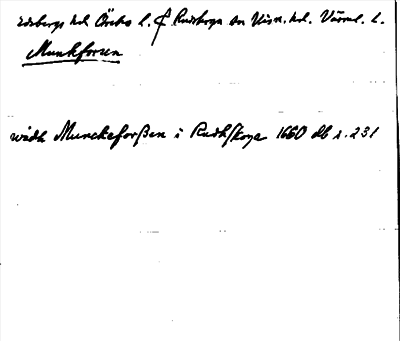 Edsbergs hd Örebro l. & Rudskoga sn Visn. hd. Värml. l.
Munkforsen
widh Munckeforßen i Rudhskoga 1660 db s. 231